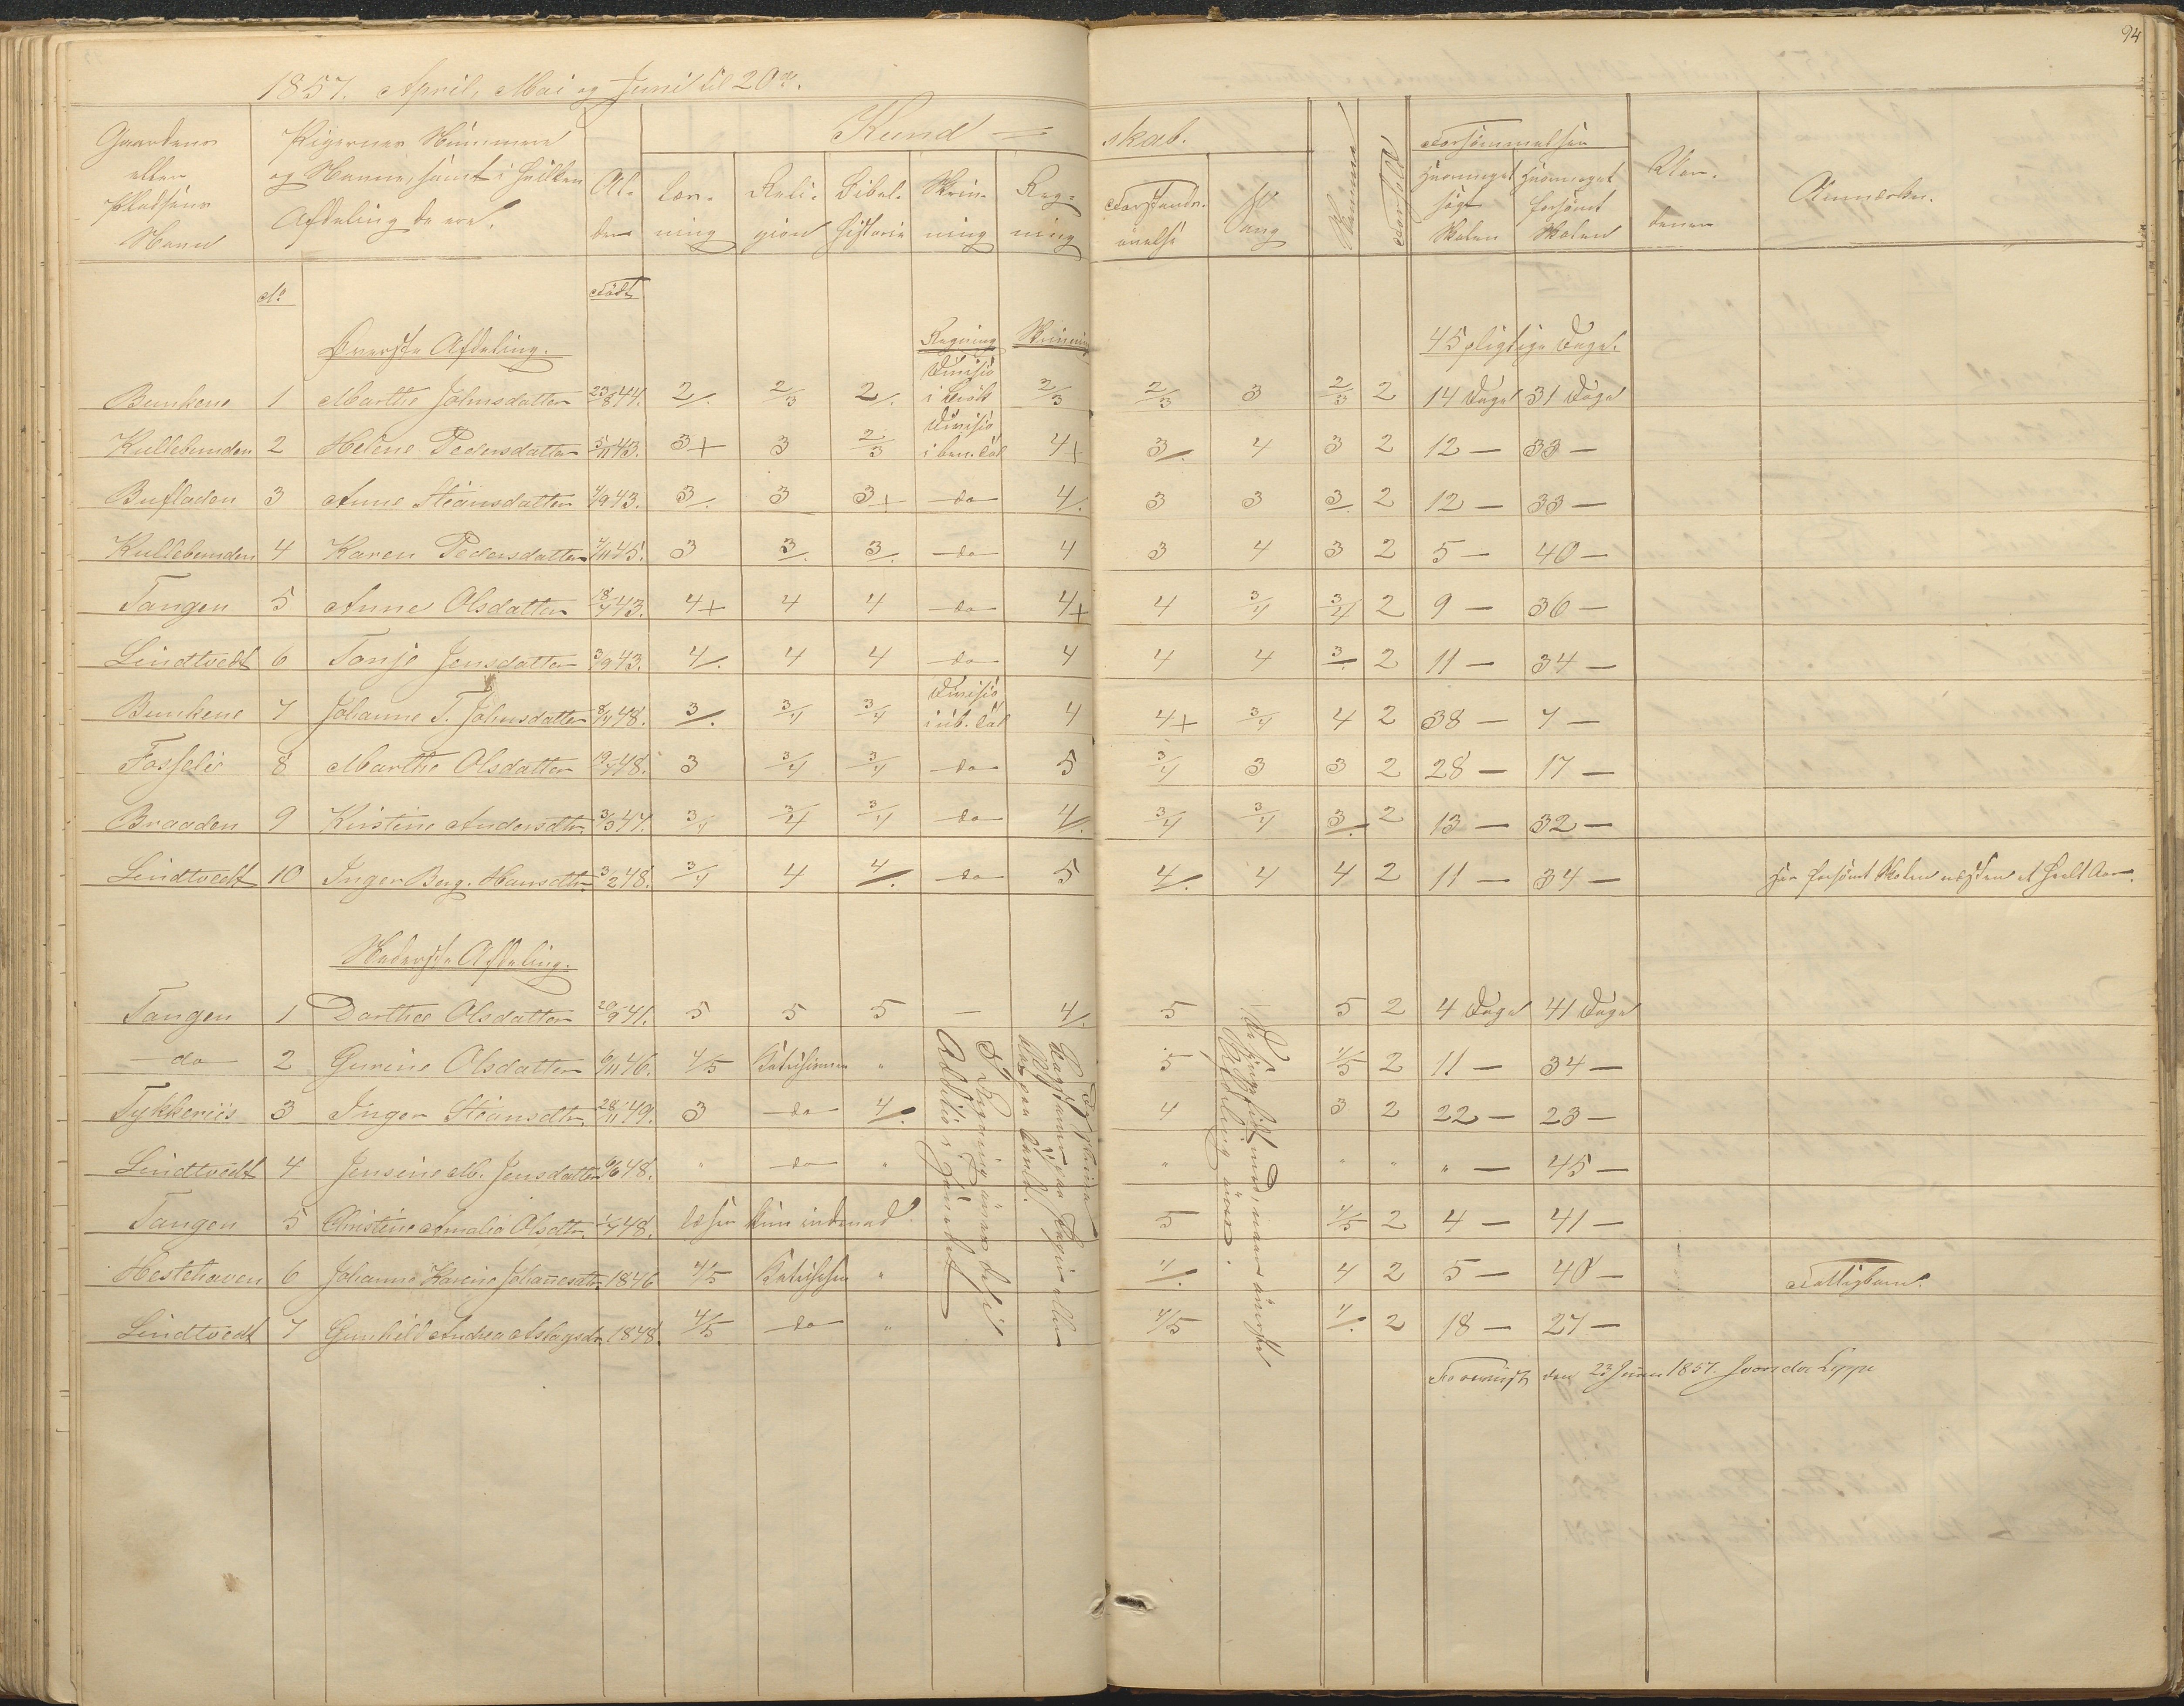 94
1857. April, Mai og Juni til 20de.
Gaardens eller Pladsens Navn | Pigernes Nummere og Navne, samt i hvilken Afdeling de ere. | Al-der | Kund = skab. | Nemme | Forhold | Forsømmelser | Aarsagen
Læs-ning | Reli-gion | Bibel-historie | Skriv-ning | Reg-ning | Forstands-øvelse | Sang | Hvormeget søgt Skolen | Hvormeget forsømt Skolen | Anmærkn.
No | Født
Øverste Afdeling. | Regning | Skrivning | 45 pligtige Dage.
Bunkene 1 Marthe Johnsdatter 23/8 44. 2/. 2/3 2/. Divisio i Brøk 2/3 2/3 3 2/3 2 14 Dage 31 Dage
Kullebunden 2 Helene Pedersdatter 5/11 43. 3+ 3 2/3 Divisio i ben. Tal 4+ 3/. 4 3 2 12 — 33 —
Bufladen 3 Anne Steansdatter 4/9 43. 3/. 3 3+ do 4/. 3 3 3/. 2 12 — 33 —
Kullebunden 4 Karen Pedersdatter 4/11 45. 3 3/. 3/. do 4 3 4 3 2 5 — 40 —
Tangen 5 Anne Olsdatter 18/7 43. 4+ 4 4 do 4+ 4 3/4 3/4 2 9 — 36 —
Lindtvedt 6 Tonje Jensdatter 3/9 43. 4/. 4 4 do 4 4 4 3/. 2 11 — 34 —
Bunkene 7 Johanne T. Johnsdatter 8/4 48. 3/. 3/4 3/4 Divisio i ub. Tal 4 4+ 3/4 4 2 38 — 7 —
Fosselie 8 Marthe Olsdatter 19/7 48. 3 3/4 3/4 do 5 3/4 3 3 2 28 — 17 —
Braaden 9 Kirstine Andersdtr. 3/3 47. 3/4 3/4 3/4 do 4/. 3/4 3/4 3/. 2 13 — 32 —
Lindtvedt 10 Inger Berg. Hansdtr 3/2 48. 3/4 4 4/. do 5 4/. 4 4 2 11 — 34 — Har forsømt Skolen næsten et heelt Aar.
Nederste Afdeling.
Tangen 1 Dorthea Olsdatter 20/9 41. 5 5 5 — 4/. 5 5 2 4 Dage 41 Dage
do 2 Gurine Olsdatter 6/11 46. 4/5 Katechismen " 5 4/5 2 11 — 34 —
Tykkeriis 3 Inger Steansdtr 28/11 49. 3 do 4/. 4 3 2 22 — 23 —
Lindtvedt 4 Jensine M. Jensdatter 6/6 48. " do " " " " " — 45 —
Tangen 5 Christine Amalia Olsdtr. 1/7 48. læser kun indenad 5 4/5 2 4 — 41 —
Hestehaven 6 Johanne Karine Johannesdtr. 1846 4/5 Katechism " 4/. 4 2 5 — 40 — Fattigbarn.
Lindtvedt 7 Gunhild Andrea Aslagsdr. 1848. 4/5 do " 4/5 4/. 2 18 — 27 —
I Regning øves de i
Addition i Hovedet
De skrive
Bogstaver paa Papir eller
paa Tavle.
De synge lidt med, naar øverste
Afdeling øves.
Foreviist den 23 Juni 1857. J von der Lippe